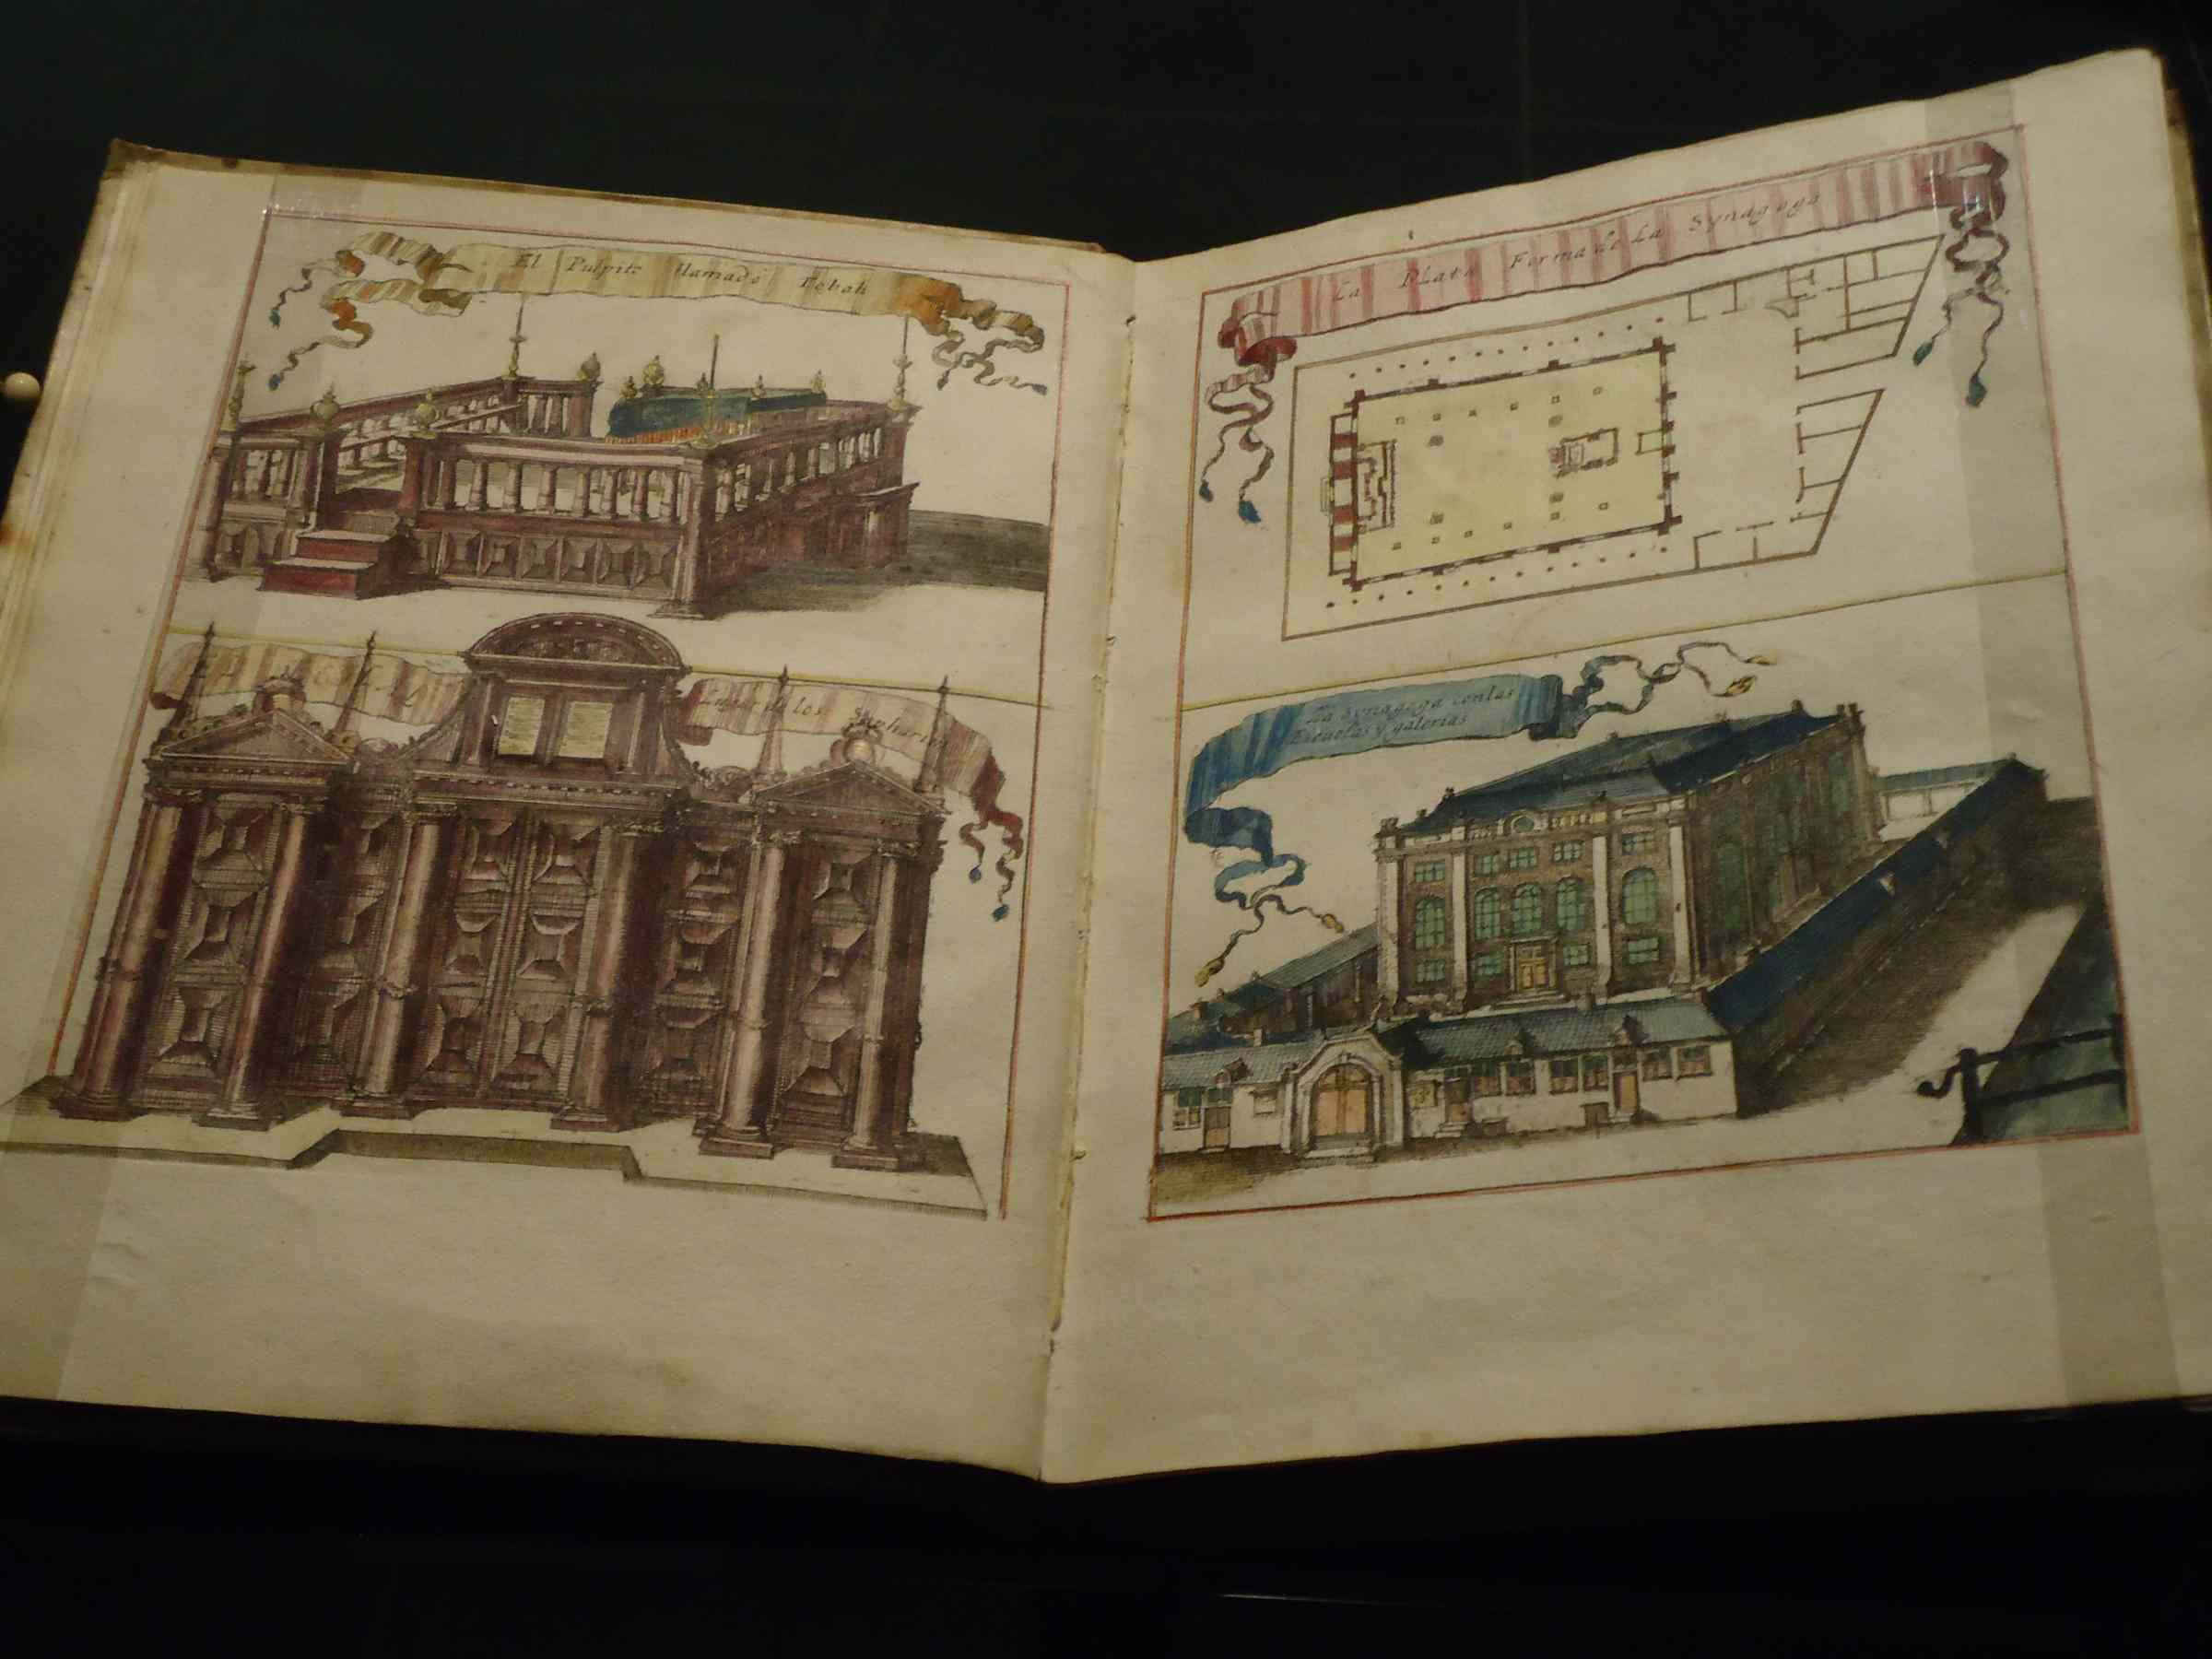 El Pulpito llamado Tebah
HEHAL Lugar de los Sepharim
La Plata Forma de La Synagoga
La Synagoga con las
Escuelas y galerias